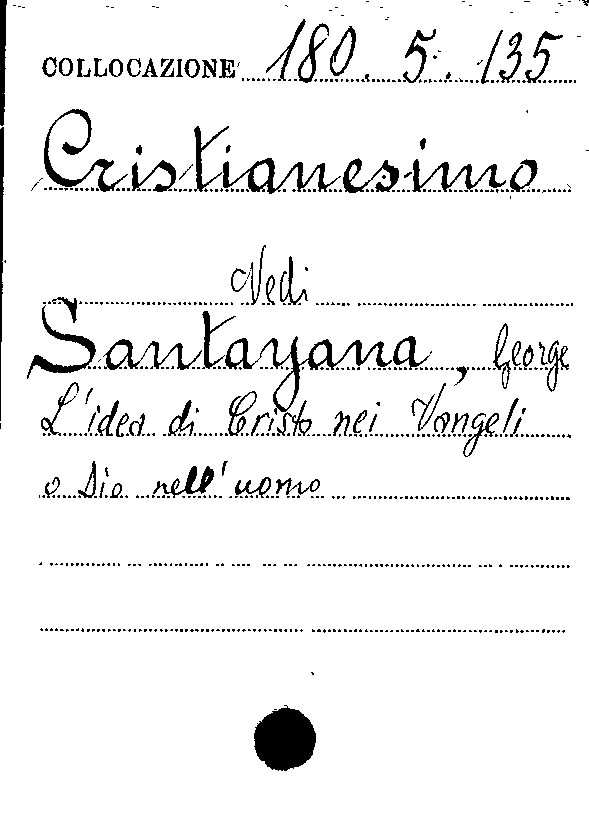 COLLOCAZIONE 180. 5. 135
Cristianesimo
Vedi
Santayana, George
L'idea di Cristo nei Vangeli
o Dio nell'uomo